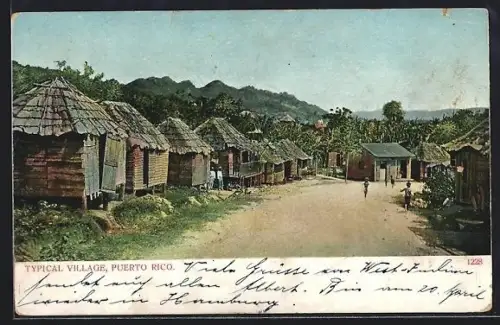 TYPICAL VILLAGE, PUERTO RICO.
1228
Viele Grüsse aus West-Indien
sendet auf allen Albert. Bin am 20. April
wieder in Hamburg